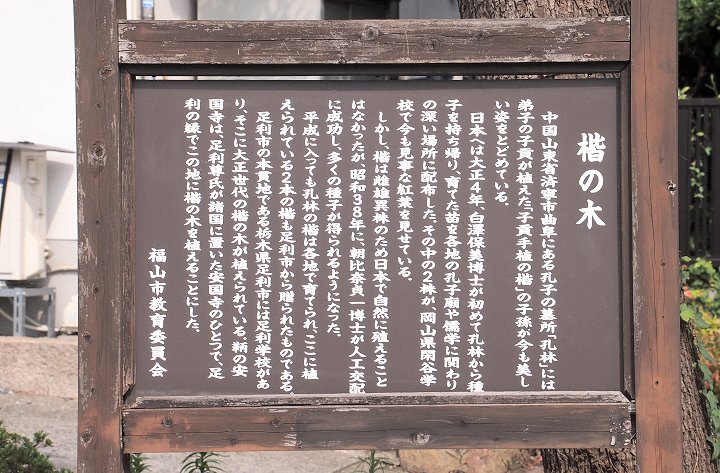 楷の木
中国山東省済寧市曲阜にある孔子の墓所「孔林」には
弟子の子貢が植えた「子貢手植の楷」の子孫が今も美し
い姿をとどめている。
日本へは大正４年、白澤保美博士が初めて孔林から種
子を持ち帰り、育てた苗を各地の孔子廟や儒学に関わり
の深い場所に配布した。その中の２株が、岡山県閑谷学
校で今も見事な紅葉を見せている。
しかし、楷は雌雄異株のため日本で自然に殖えること
はなかったが、昭和３８年に、朝比奈貞一博士が人工交配
に成功し、多くの種子が得られるようになった。
平成に入っても孔林の楷は各地で育てられ、ここに植
えられている２本の楷も足利市から贈られたものである。
足利市の本貫地である栃木県足利市には足利学校があ
り、そこに大正世代の楷の木が植えられている。鞆の安
国寺は、足利尊氏が諸国に置いた安国寺のひとつで、足
利の縁でこの地に楷の木を植えることにした。
福山市教育委員会